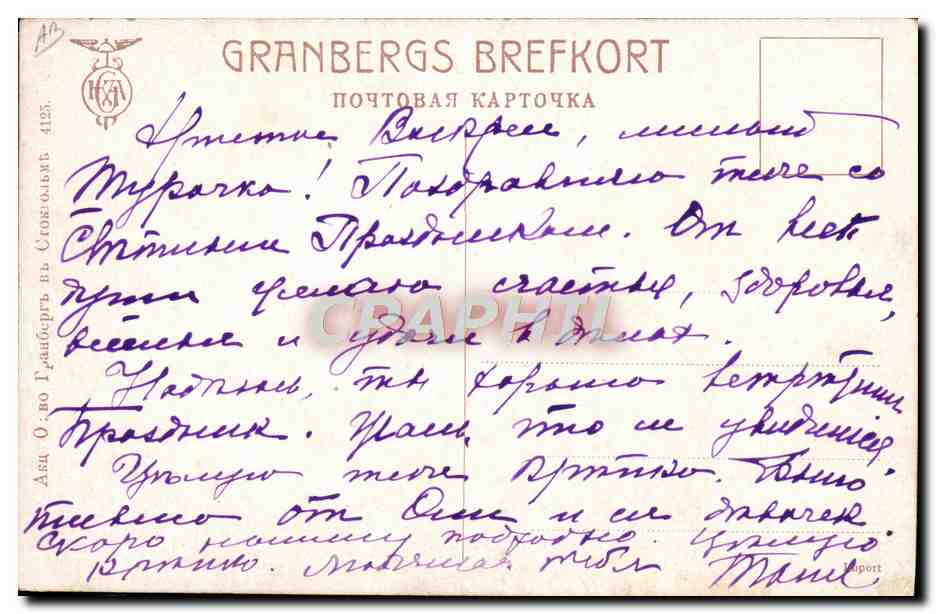 АВ
GRANBERGS BREFKORT
ПОЧТОВАЯ КАРТОЧКА
Акц. О-во Гранбергъ въ Стокгольмѣ 4125.
Христос Воскрес, милый
Шурочка! Поздравляю тебе со
Светлым Праздником. От всей
души желаю счастья, здоровья,
веселья и удачи в делах.
Надеюсь, ты хорошо встретиш
Праздник. Жаль, что не увидимся
Целую тебе крепко. Было
письмо от Оли и ея девочек
Скоро напишу подробно. Целую
крепко. Любящая тебя Таня.
CRAPHTI
Import